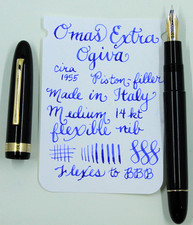 Omas Extra
Ogiva
circa
1955 Piston-filler
Made in Italy
Medium 14kt
flexible nib
Flexes to BBB